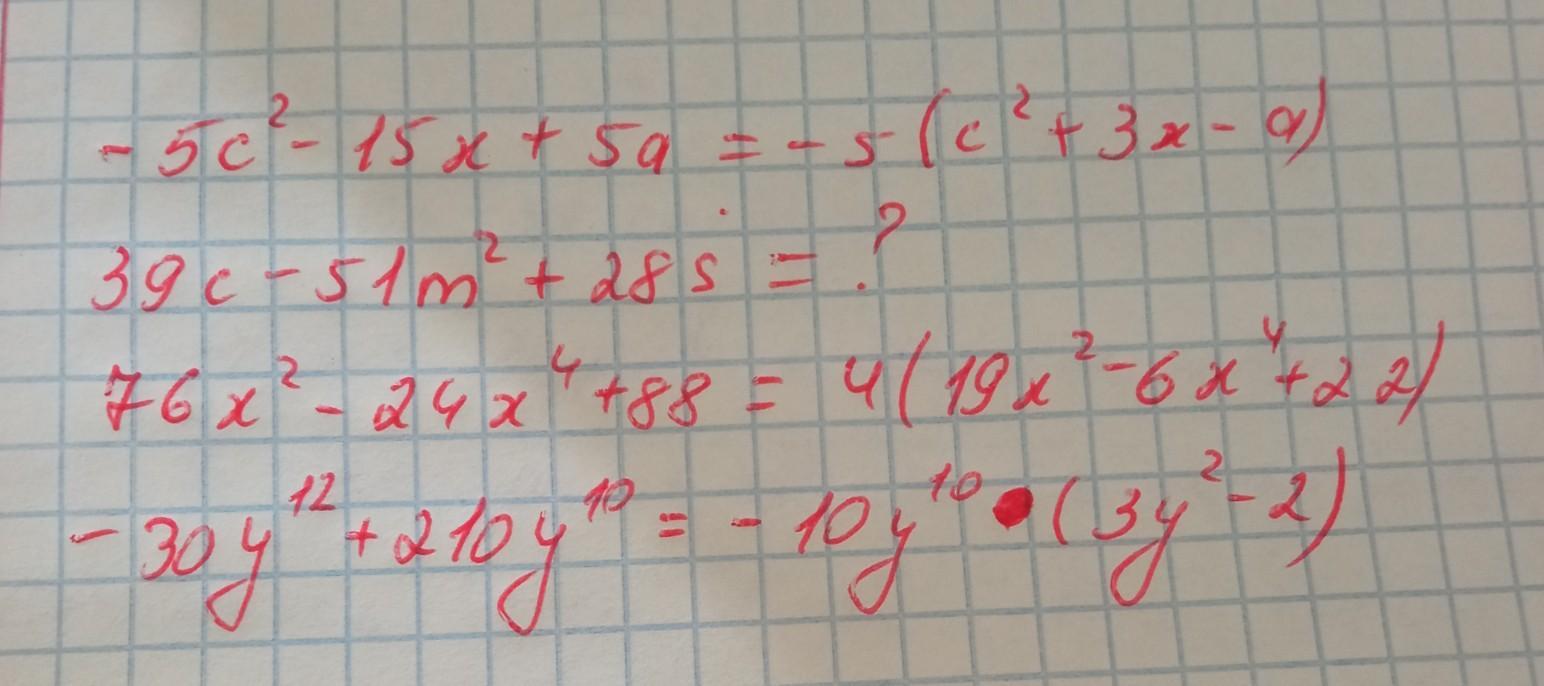 - 5c² - 15x + 5a = - 5 (c² + 3x - a)
39c - 51m² + 28s = ?
76x² - 24x⁴ + 88 = 4 (19x² - 6x⁴ + 22)
- 30y¹² + 210y¹⁰ = - 10y¹⁰ • (3y² - 2)